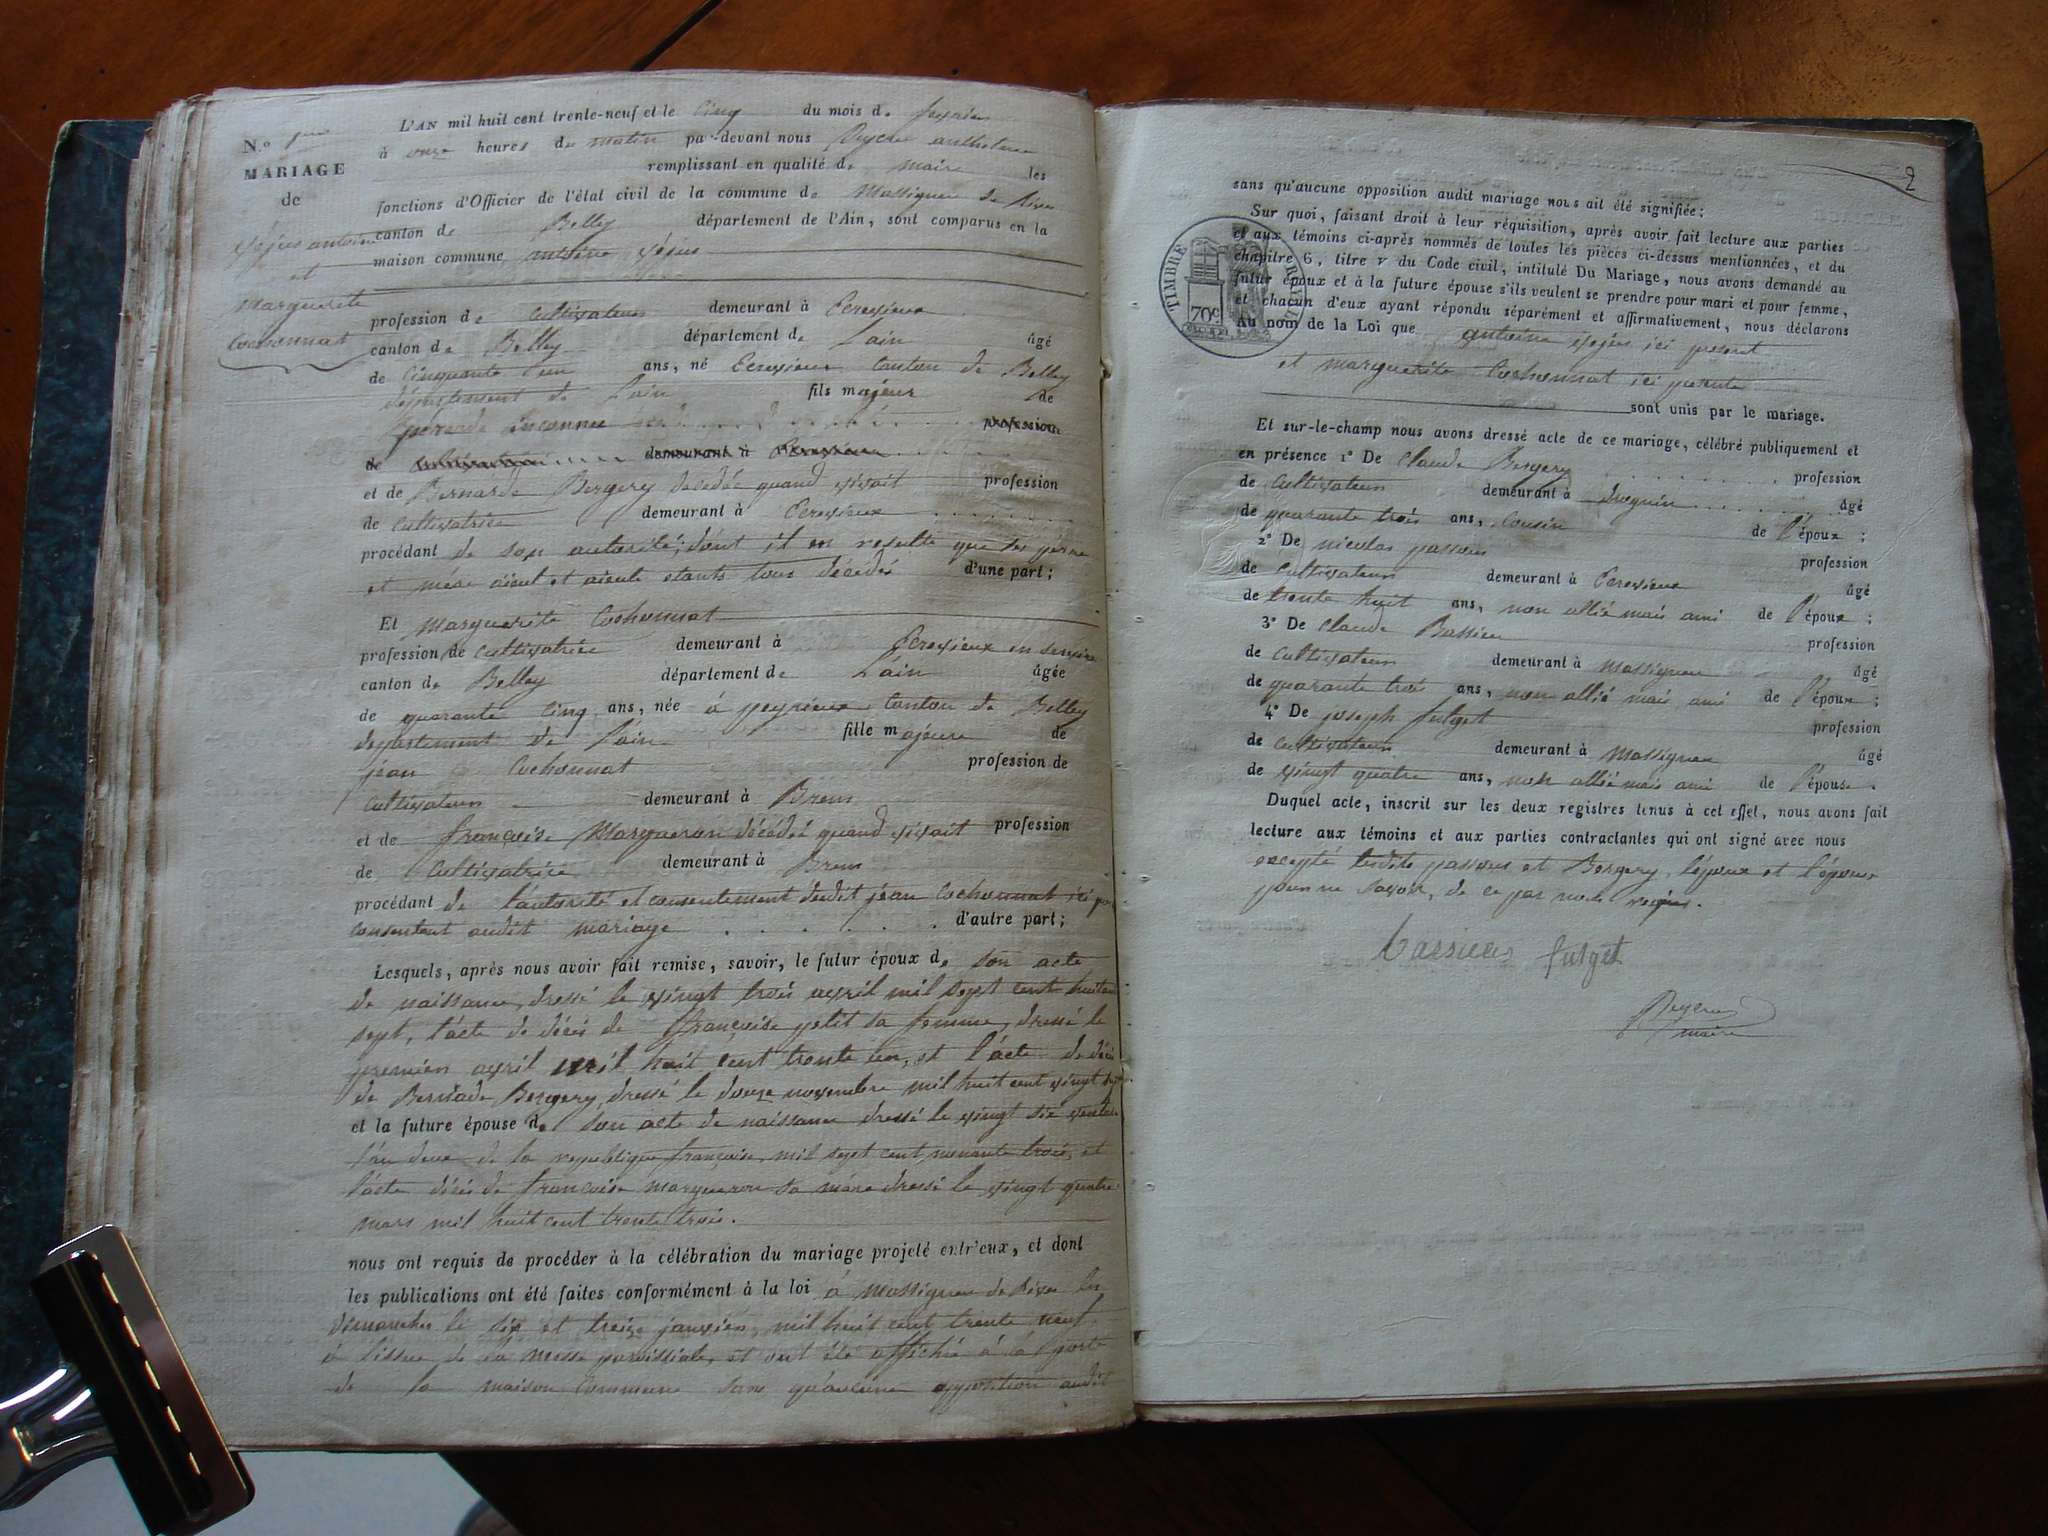 N.o
MARIAGE
de
antoine
et
Marguerite
Cochonnat
L'AN mil huit cent trente-neuf et le cinq du mois de
à onze heures du matin par-devant nous
remplissant en qualité de maire les
fonctions d'Officier de l'état civil de la commune de Massignieu de Rives
canton de Belley département de l'Ain, sont comparus en la
maison commune antoine
profession de cultivateur demeurant à
canton de Belley département de L'ain âgé
de cinquante un ans, né canton de Belley
département de L'ain fils majeur de
père inconnu profession
de cultivateur demeurant à
et de Bernarde Bergery décédée quand vivait profession
de cultivatrice demeurant à
procédant de son autorité; dont il en resulte que ses père
et mère aieul et aieule etants tous décédés d'une part;
Et Marguerite Cochonnat
profession de cultivatrice demeurant à
canton de Belley département de L'ain âgée
de quarante cinq ans, née à peyrieux canton de Belley
département de L'ain fille majeure de
jean Cochonnat profession de
cultivateur demeurant à Brens
et de françoise Margueron décédée quand vivait profession
de cultivatrice demeurant à Brens
procédant de l'autorité et consentement dudit jean Cochonnat ici
consentant audit mariage d'autre part;
Lesquels, après nous avoir fait remise, savoir, le futur époux de son acte
de naissance, dressé le vingt trois avril mil sept cent huitante
sept, l'acte de décès de françoise petit sa femme, dressé le
premier avril mil huit cent trente un, et l'acte de décès
de Bernade Bergery, dressé le douze novembre mil huit cent vingt
et la future épouse de son acte de naissance dressé le vingt six
l'an deux de la republique française, mil sept cent nonante trois, et
l'acte décès de françoise margueron sa mère dressé le vingt quatre
mars mil huit cent trente trois.
nous ont requis de procéder à la célébration du mariage projeté entr'eux, et dont
les publications ont été faites conformément à la loi à Massignieu de Rives les
dimanches le six et treize janvier, mil huit cent trente neuf
à l'issue de la messe paroissiale, et ont été affiché à la porte
de la maison commune sans qu'aucune opposition audit
2
sans qu'aucune opposition audit mariage nous ait été signifiée;
Sur quoi, faisant droit à leur réquisition, après avoir fait lecture aux parties
et aux témoins ci-après nommés de toutes les pièces ci-dessus mentionnées, et du
chapitre 6, titre v du Code civil, intitulé Du Mariage, nous avons demandé au
futur époux et à la future épouse s'ils veulent se prendre pour mari et pour femme,
et chacun d'eux ayant répondu séparément et affirmativement, nous déclarons
Au nom de la Loi que antoine ici present
et marguerite Cochonnat ici presente
sont unis par le mariage.
TIMBRE ROYAL
70c
Et sur-le-champ nous avons dressé acte de ce mariage, célébré publiquement et
en présence 1° De Claude Bergery profession
de cultivateur demeurant à âgé
de quarante trois ans, Cousin de l'époux;
2° De nicolas passous profession
de cultivateur demeurant à âgé
de trente huit ans, non allié mais ami de l'époux;
3° De Claude Bassieu profession
de cultivateur demeurant à Massignieu âgé
de quarante trois ans, non allié mais ami de l'époux;
4° De joseph fulget profession
de cultivateur demeurant à Massignieu âgé
de vingt quatre ans, non allié mais ami de l'épouse.
Duquel acte, inscrit sur les deux registres tenus à cet effet, nous avons fait
lecture aux témoins et aux parties contractantes qui ont signé avec nous
excepté lesdits passous et Bergery, l'époux et l'épouse
pour ne savoir, de ce par nous requis.
fulget
maire